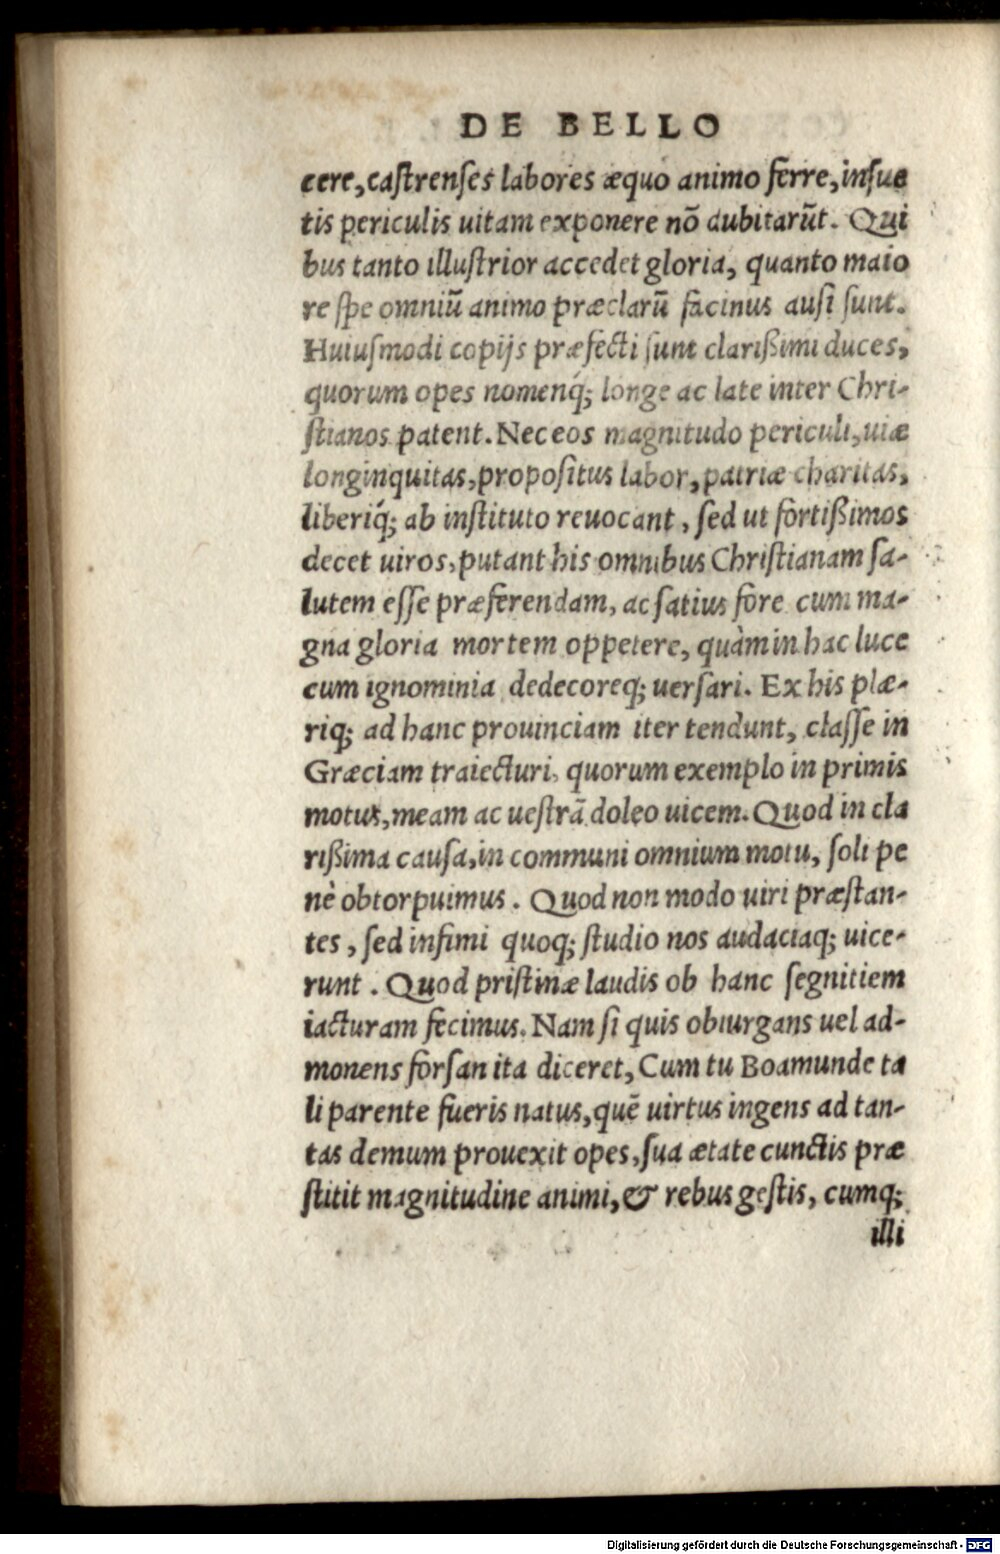 DE BELLO
cere, castrenses labores æquo animo ferre, insue
tis periculis uitam exponere nõ dubitarũt. Qui
bus tanto illustrior accedet gloria, quanto maio
re spe omniũ animo præclarũ facinus ausi sunt.
Huiusmodi copijs præfecti sunt clarißimi duces,
quorum opes nomenq́; longe ac late inter Chri-
stianos patent. Nec eos magnitudo periculi, uiæ
longinquitas, propositus labor, patriæ charitas,
liberiq́; ab instituto reuocant, sed ut fortißimos
decet uiros, putant his omnibus Christianam sa-
lutem esse præferendam, ac satius fore cum ma-
gna gloria mortem oppetere, quàm in hac luce
cum ignominia dedecoreq; uersari. Ex his plæ-
riq; ad hanc prouinciam iter tendunt, classe in
Græciam traiecturi, quorum exemplo in primis
motus, meam ac uestrã doleo uicem. Quod in cla
rißima causa, in communi omnium motu, soli pe
nè obtorpuimus. Quod non modo uiri præstan-
tes, sed infimi quoq; studio nos audaciaq; uice-
runt. Quod pristinæ laudis ob hanc segnitiem
iacturam fecimus. Nam si quis obiurgans uel ad-
monens forsan ita diceret, Cum tu Boamunde ta
li parente fueris natus, quẽ uirtus ingens ad tan-
tas demum prouexit opes, sua ætate cunctis præ
stitit magnitudine animi, & rebus gestis, cumq;
illi
Digitalisierung gefördert durch die Deutsche Forschungsgemeinschaft - DFG